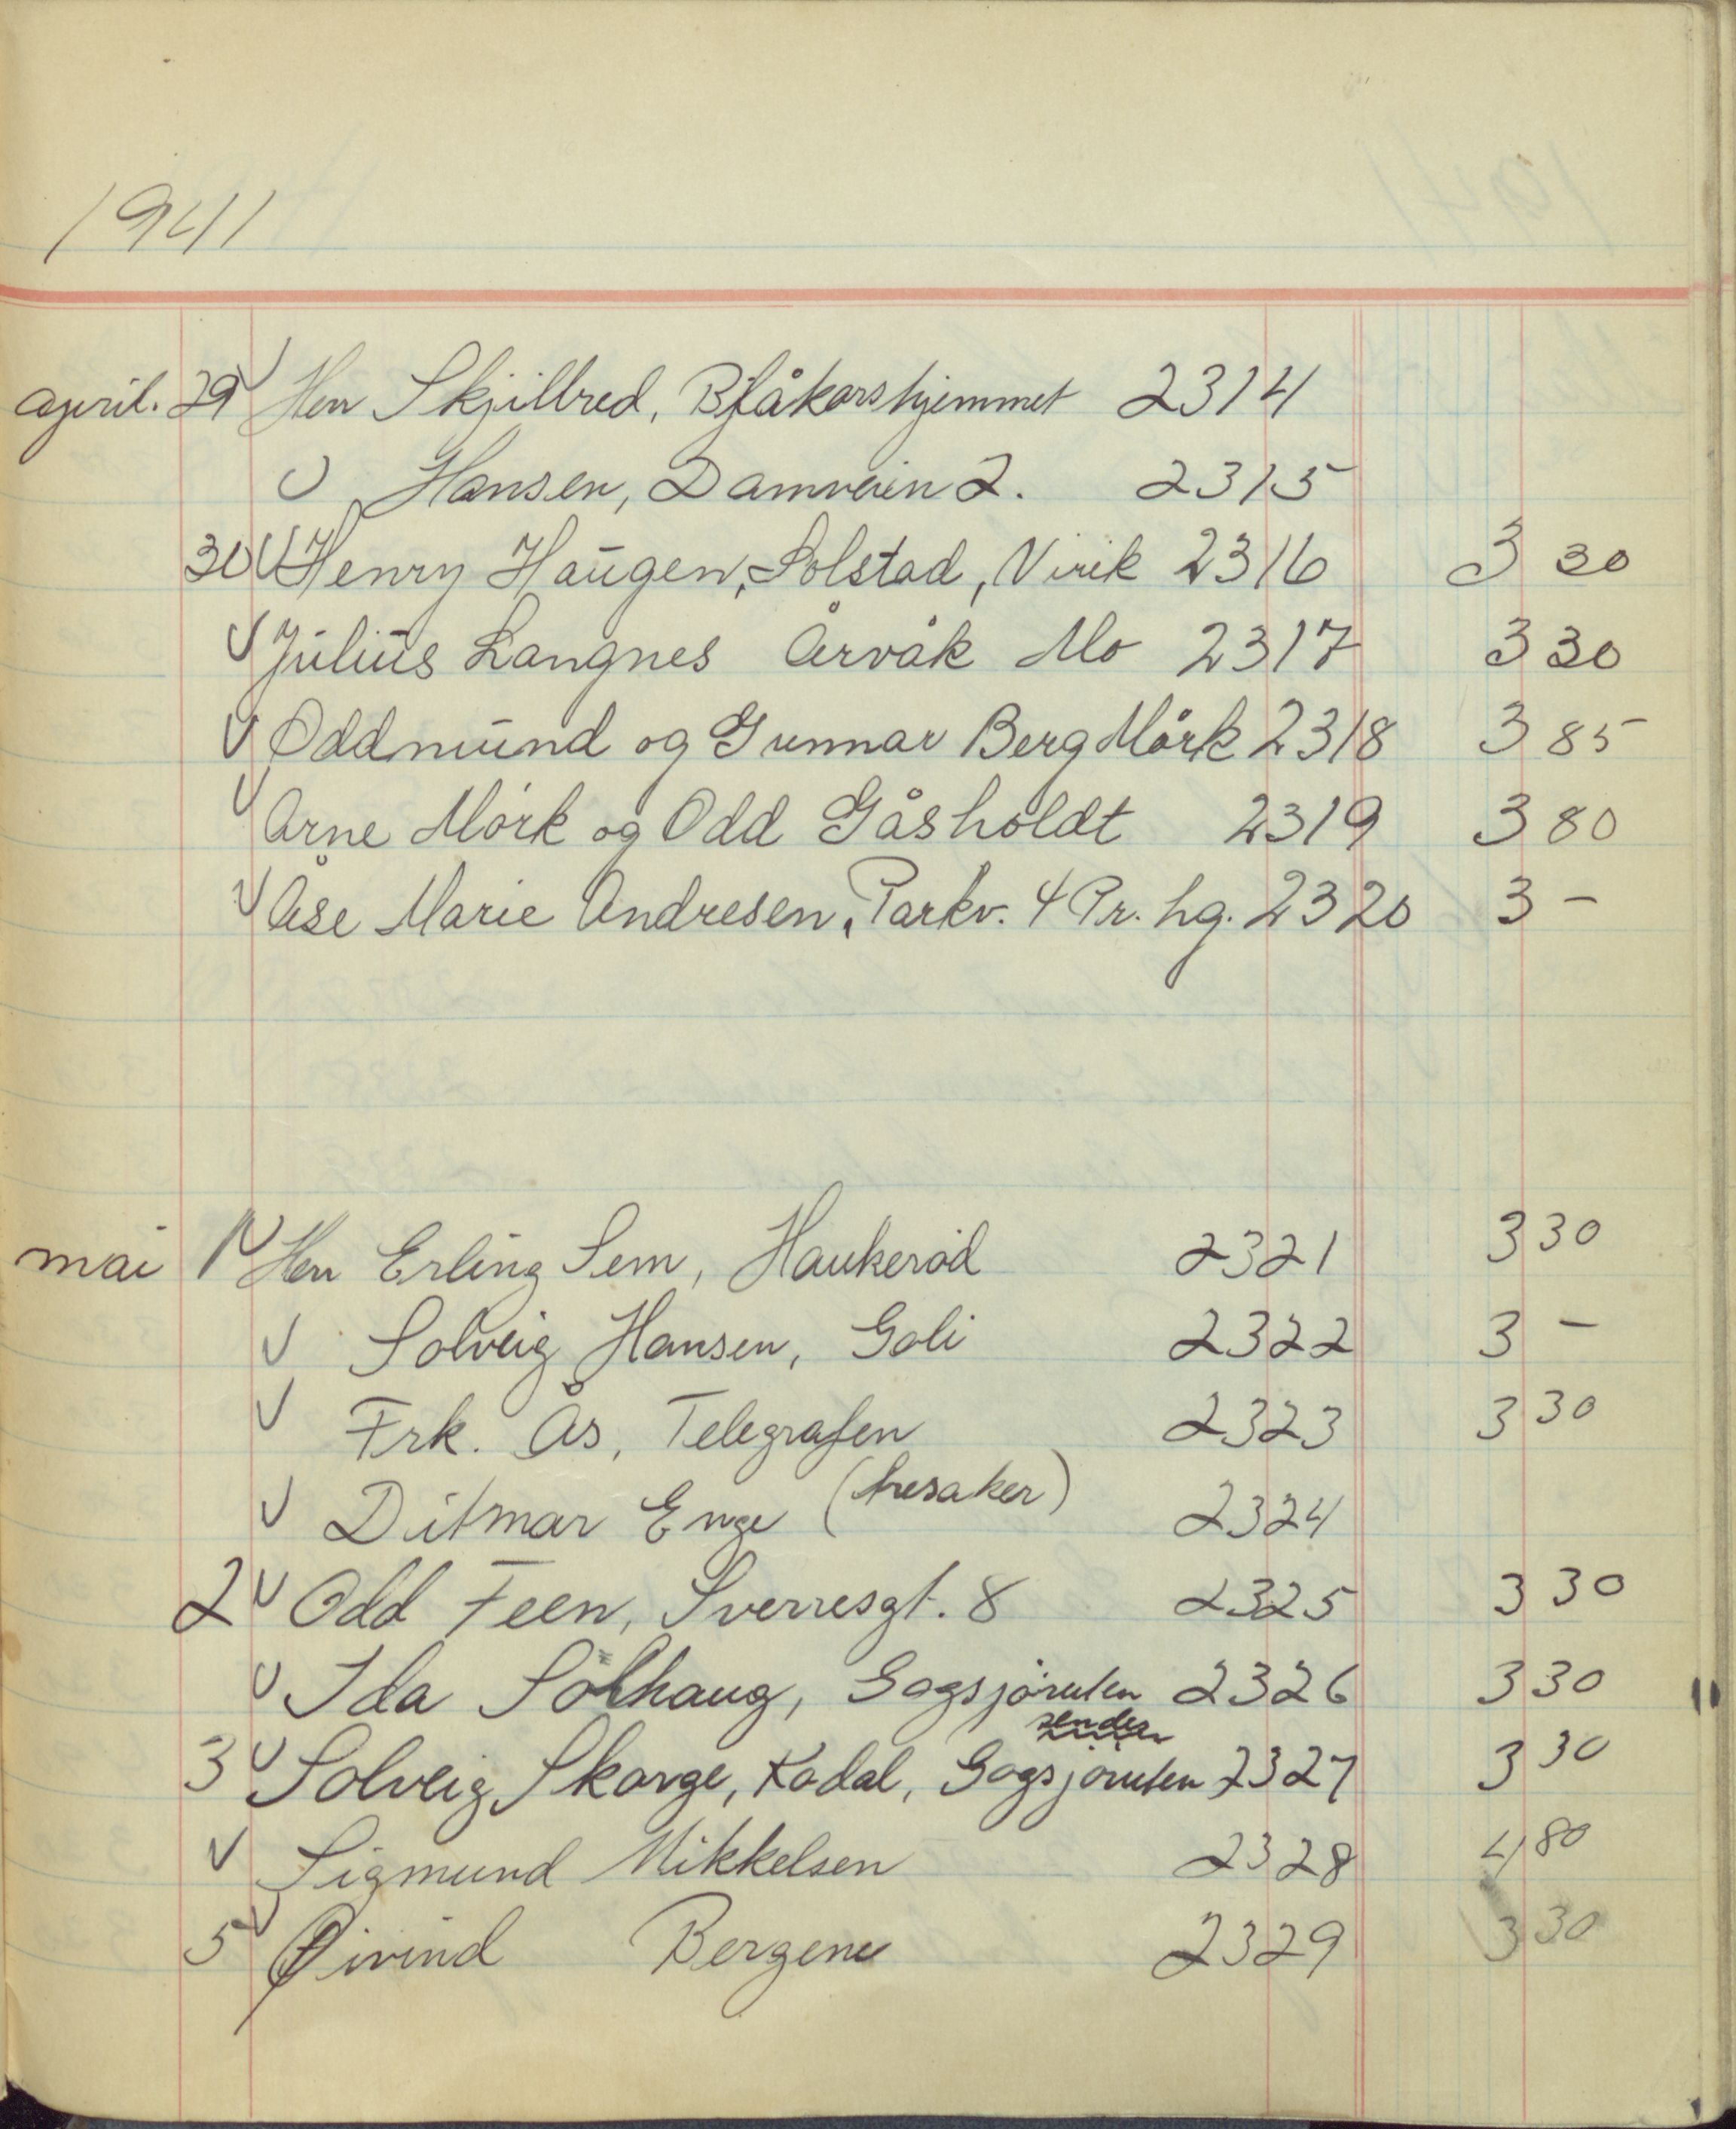 1941
april. 29 Herr Skjilbred, Blåkorshjemmet 2314
Hansen, Damveien 2. 2315
30 Henry Haugen, Solstad, Virik 2316 3 30
Julius Langnes Årvåk Mo 2317 3 30
Oddmund og Gunnar Berg Mörk 2318 3 85
Arne Mörk og Odd Gåsholdt 2319 3 80
Åse Marie Andresen, Parkv. 4 Pr. hg. 2320 3 -
mai 1 Herr Erling Sem, Haukeröd 2321 3 30
Solveig Hansen, Goli 2322 3 -
Frk. Ås, Telegrafen 2323 3 30
Ditmar Enge (tresaker) 2324
2 Odd Feen, Sverresgt. 8 2325 3 30
Ida Sölhaug, Gogsjöruten 2326 3 30
sendes
3 Solveig Skorge, Kodal, Gogsjöruten 2327 3 30
Sigmund Mikkelsen 2328 4 80
5 Øivind Bergene 2329 3 30